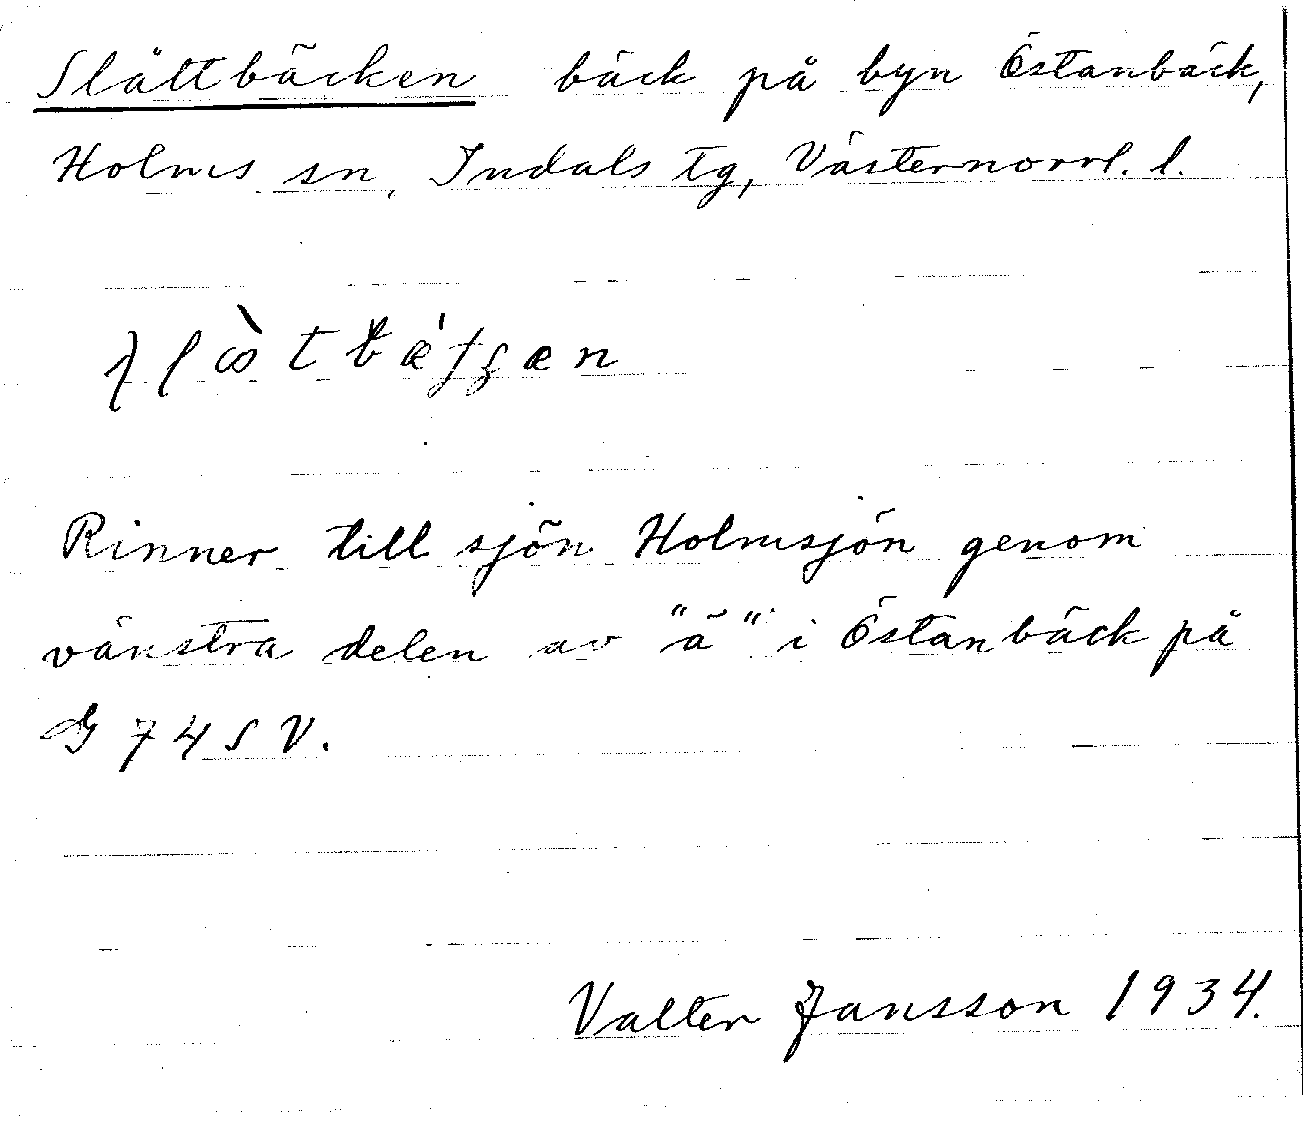 Slättbäcken bäck på byn Östanbäck,
Holms sn, Indals tg, Västernorrl. l.
Rinner till sjön Holmsjön genom
vänstra delen av "ä" i Östanbäck på
G 74 SV.
Valter Jansson 1934.